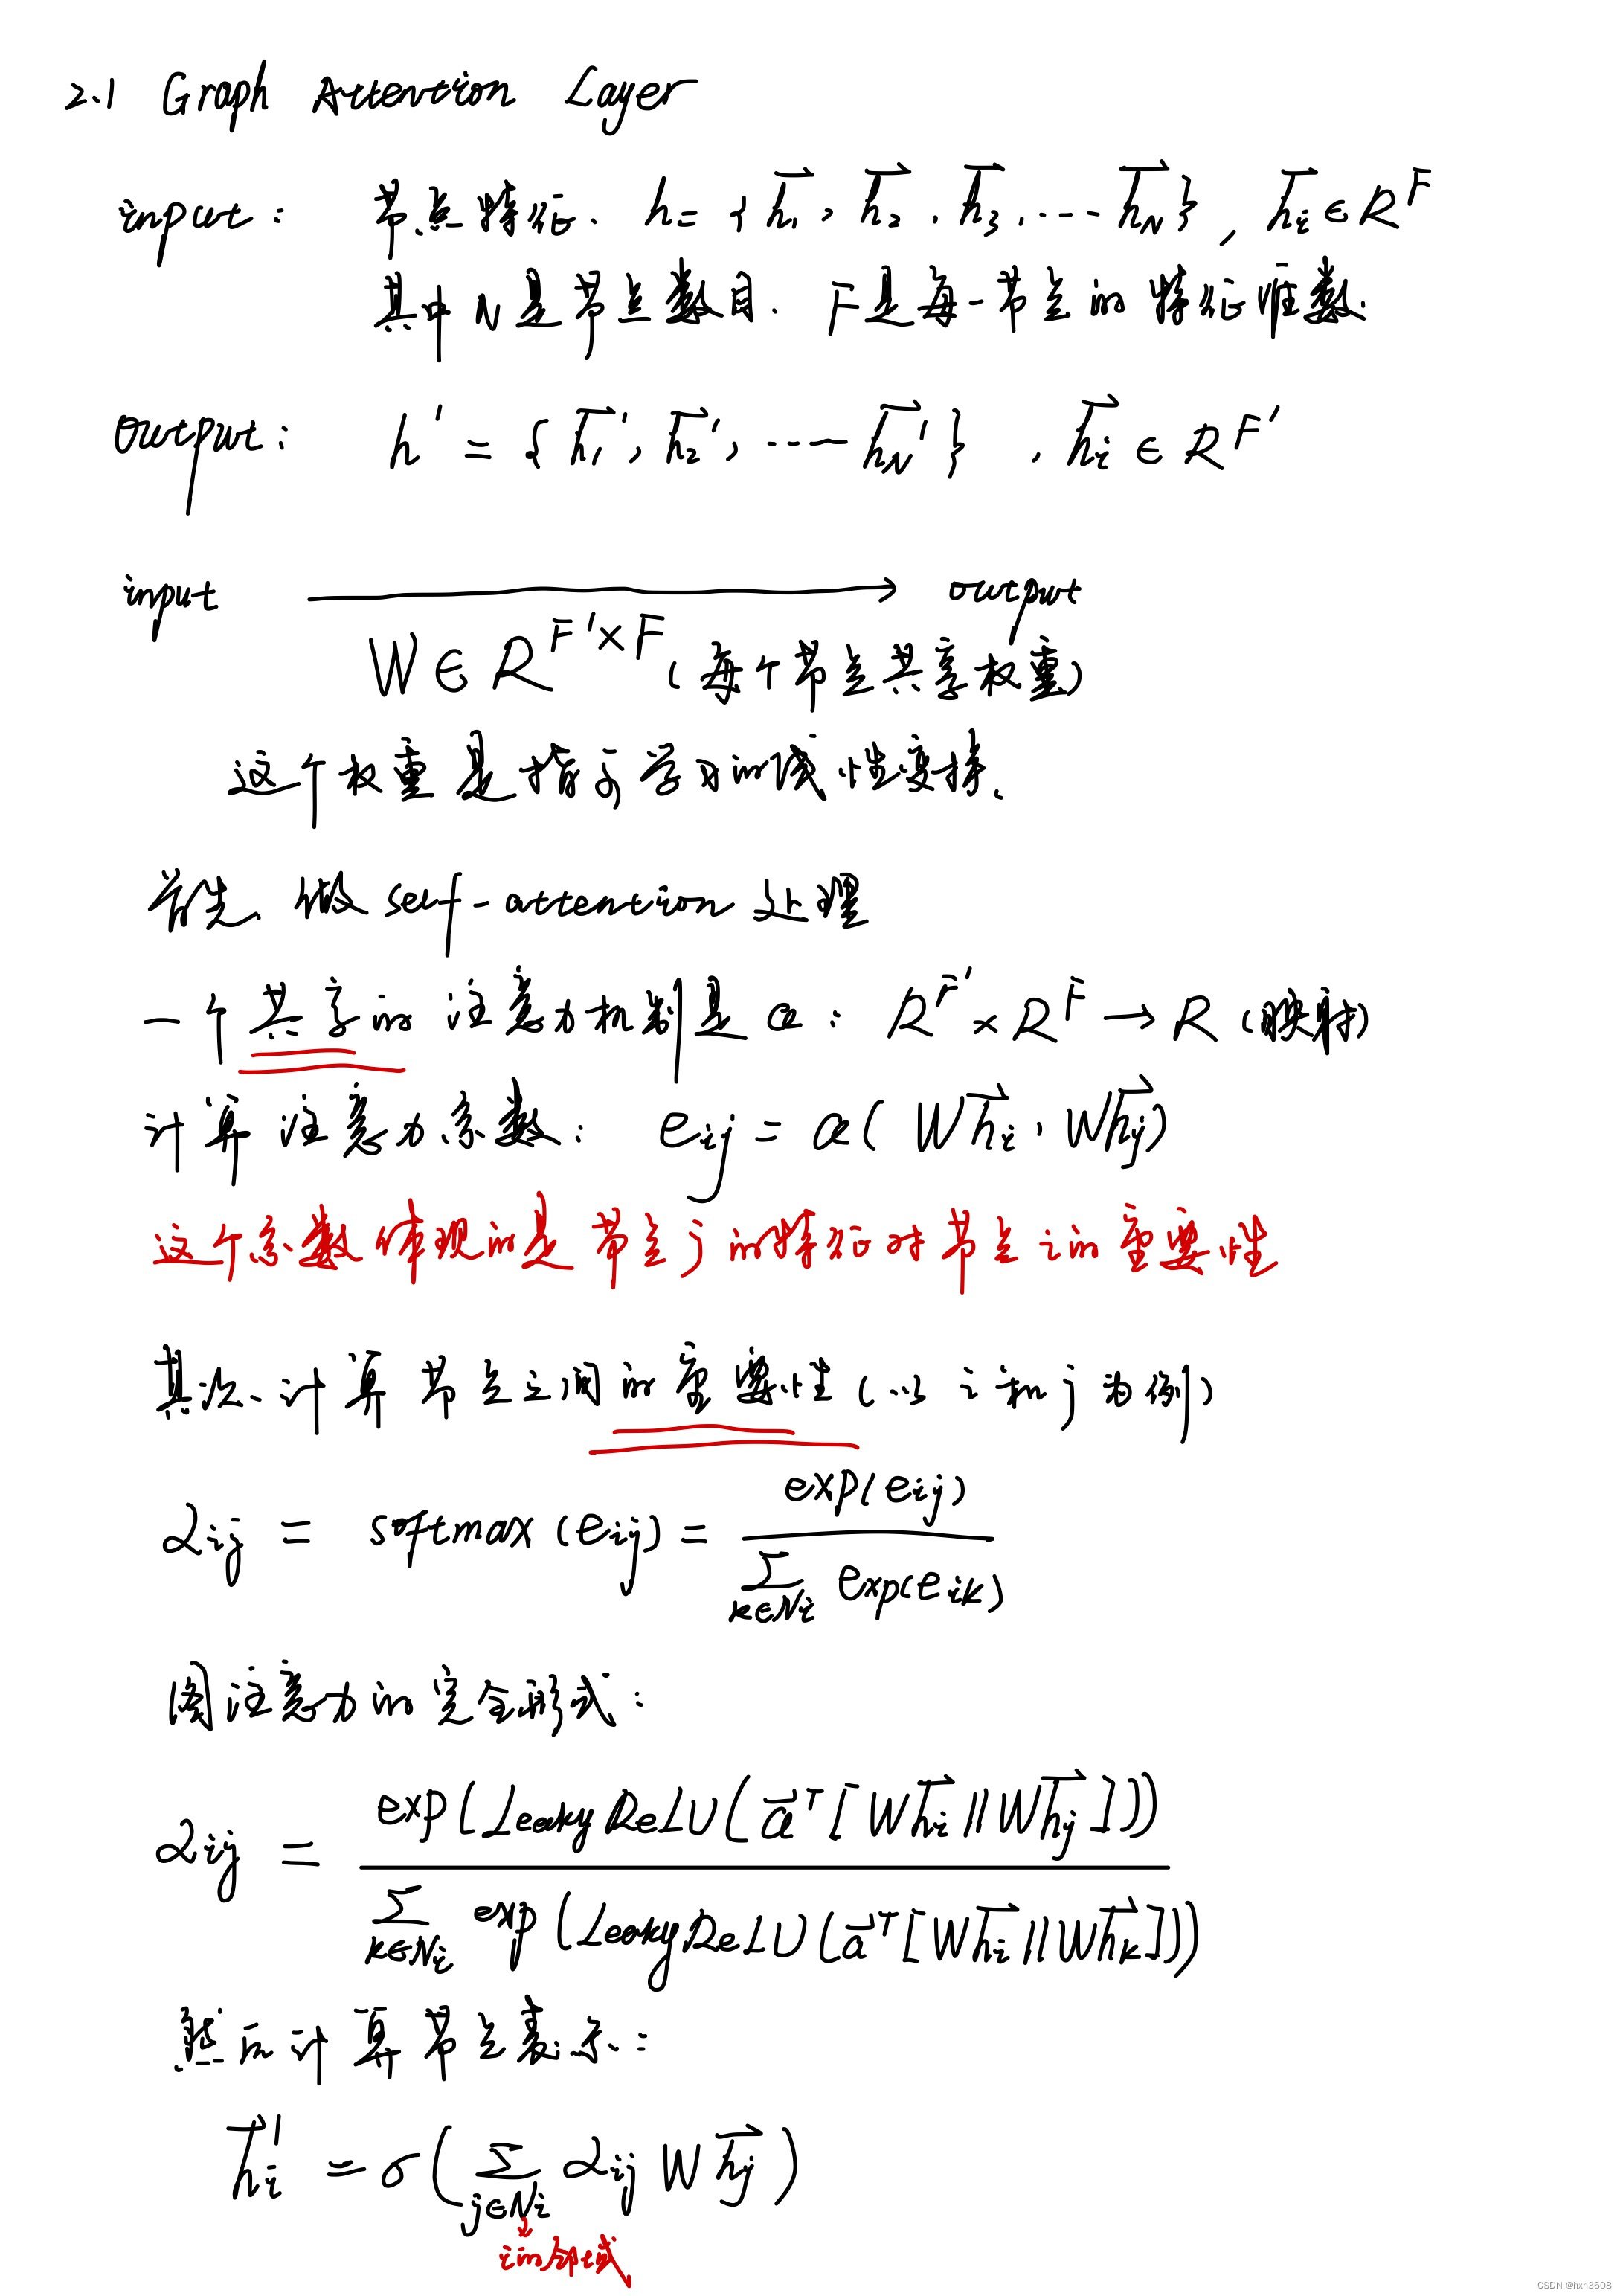 2.1 Graph Attention Layer
input: 节点特征. h = {h⃗₁, h⃗₂, h⃗₃, ... h⃗_N}, h⃗ᵢ ∈ R^F
其中 N是节点数目. F是每一节点的特征维数.
output: h' = {h⃗₁', h⃗₂', ... h⃗_N'}, h⃗ᵢ ∈ R^F'
input → output
W ∈ R^{F'×F} (每个节点共享权重)
这个权重是指示学习的线性变换.
首先、做 self-attention 处理
一个共享的注意力机制是 a: R^F' × R^F → R (映射)
计算注意力系数: e_ij = a(Wh⃗ᵢ, Wh⃗ⱼ)
这个系数体现的是节点j的特征对节点i的重要性
其次、计算节点之间的重要性(以i和j为例)
α_ij = softmax(e_ij) = exp(e_ij) / Σ_{k∈Nᵢ} exp(e_ik)
图注意力的完全形式:
α_ij = exp(LeakyReLU(a⃗^T[Wh⃗ᵢ||Wh⃗ⱼ])) / Σ_{k∈Nᵢ} exp(LeakyReLU(a⃗^T[Wh⃗ᵢ||Wh⃗_k]))
然后计算节点表示:
h⃗ᵢ' = σ(Σ_{j∈Nᵢ} α_ij Wh⃗ⱼ)
i的邻域
CSDN @hxh3608